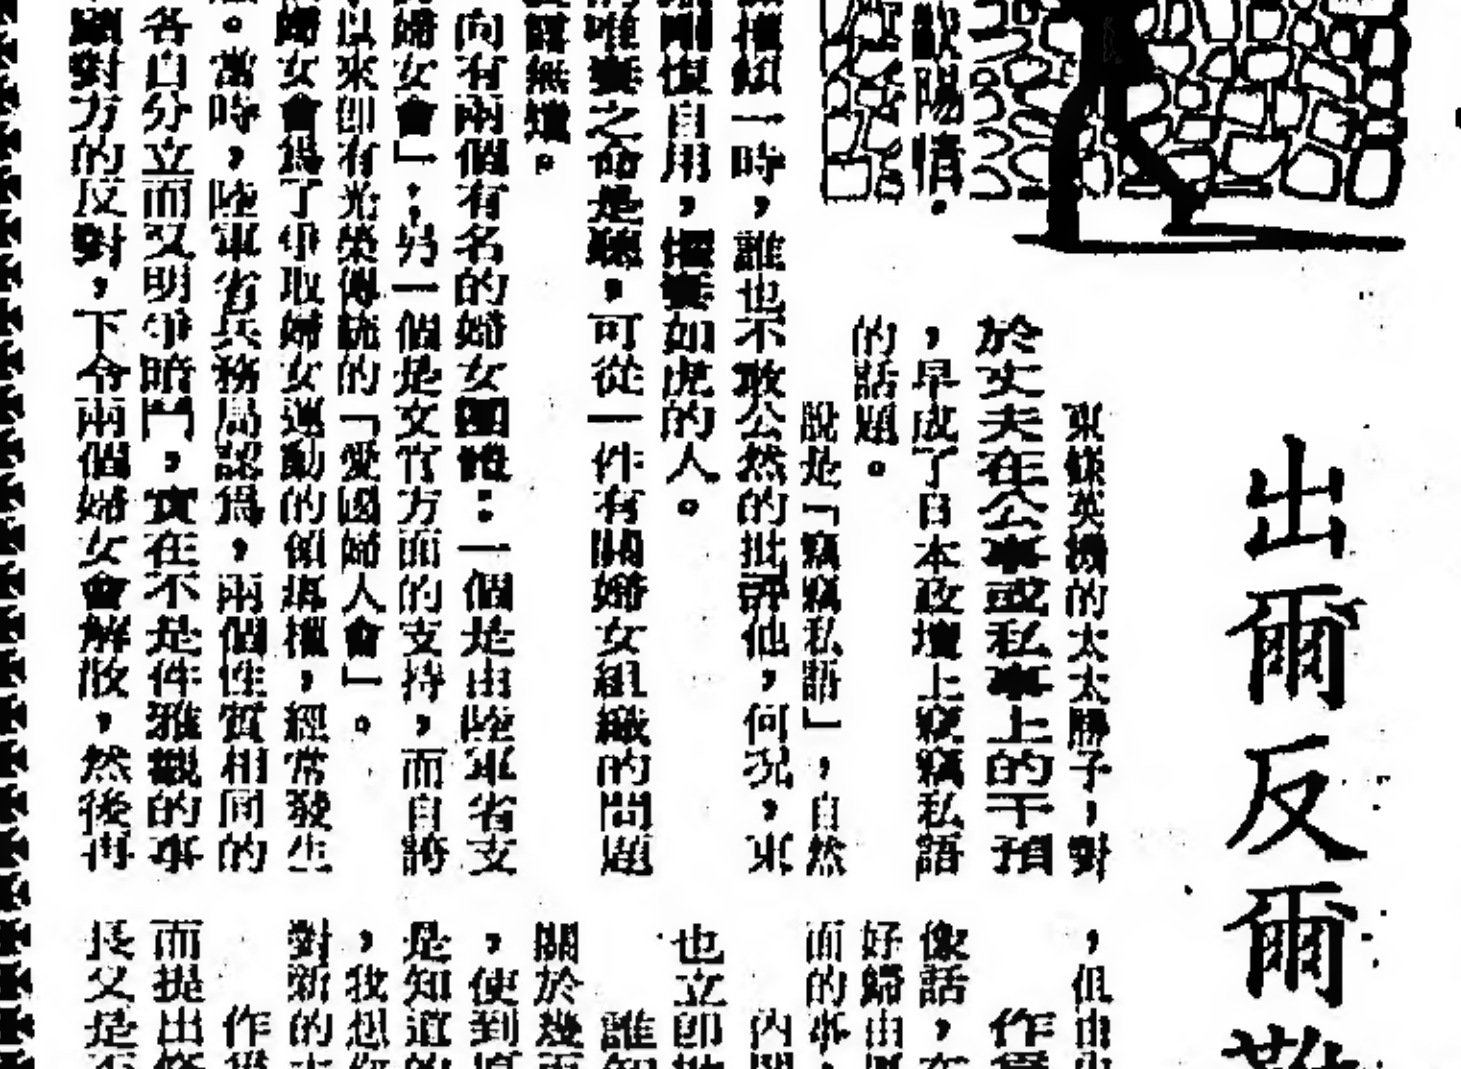 出爾反爾
東條英機的太太勝子，對
於丈夫在公事或私事上的干預
，早成了日本政壇上竊竊私語
的話題。
說是「竊竊私語」，自然
權傾一時，誰也不敢公然的批評他，何況，東
剛愎自用，懼妻如虎的人。
唯妻之命是聽，可從一件有關婦女組織的問題
無遺。
向有兩個有名的婦女團體：一個是由陸軍省支
婦女會」；另一個是文官方面的支持，而自誇
以來即有光榮傳統的「愛國婦人會」。
婦女會爲了爭取婦女運動的領導權，經常發生
。當時，陸軍省兵務局認爲，兩個性質相同的
各自分立而又明爭暗鬥，實在不是件雅觀的事
顧對方的反對，下令兩個婦女會解散，然後再
歐陽情．
，但由
作爲
像話，在
好歸由
面的事，
內閣
也立即
誰知
關於幾
，使到
是知道的
，我想你
對新的
作爲
而提出
長又是